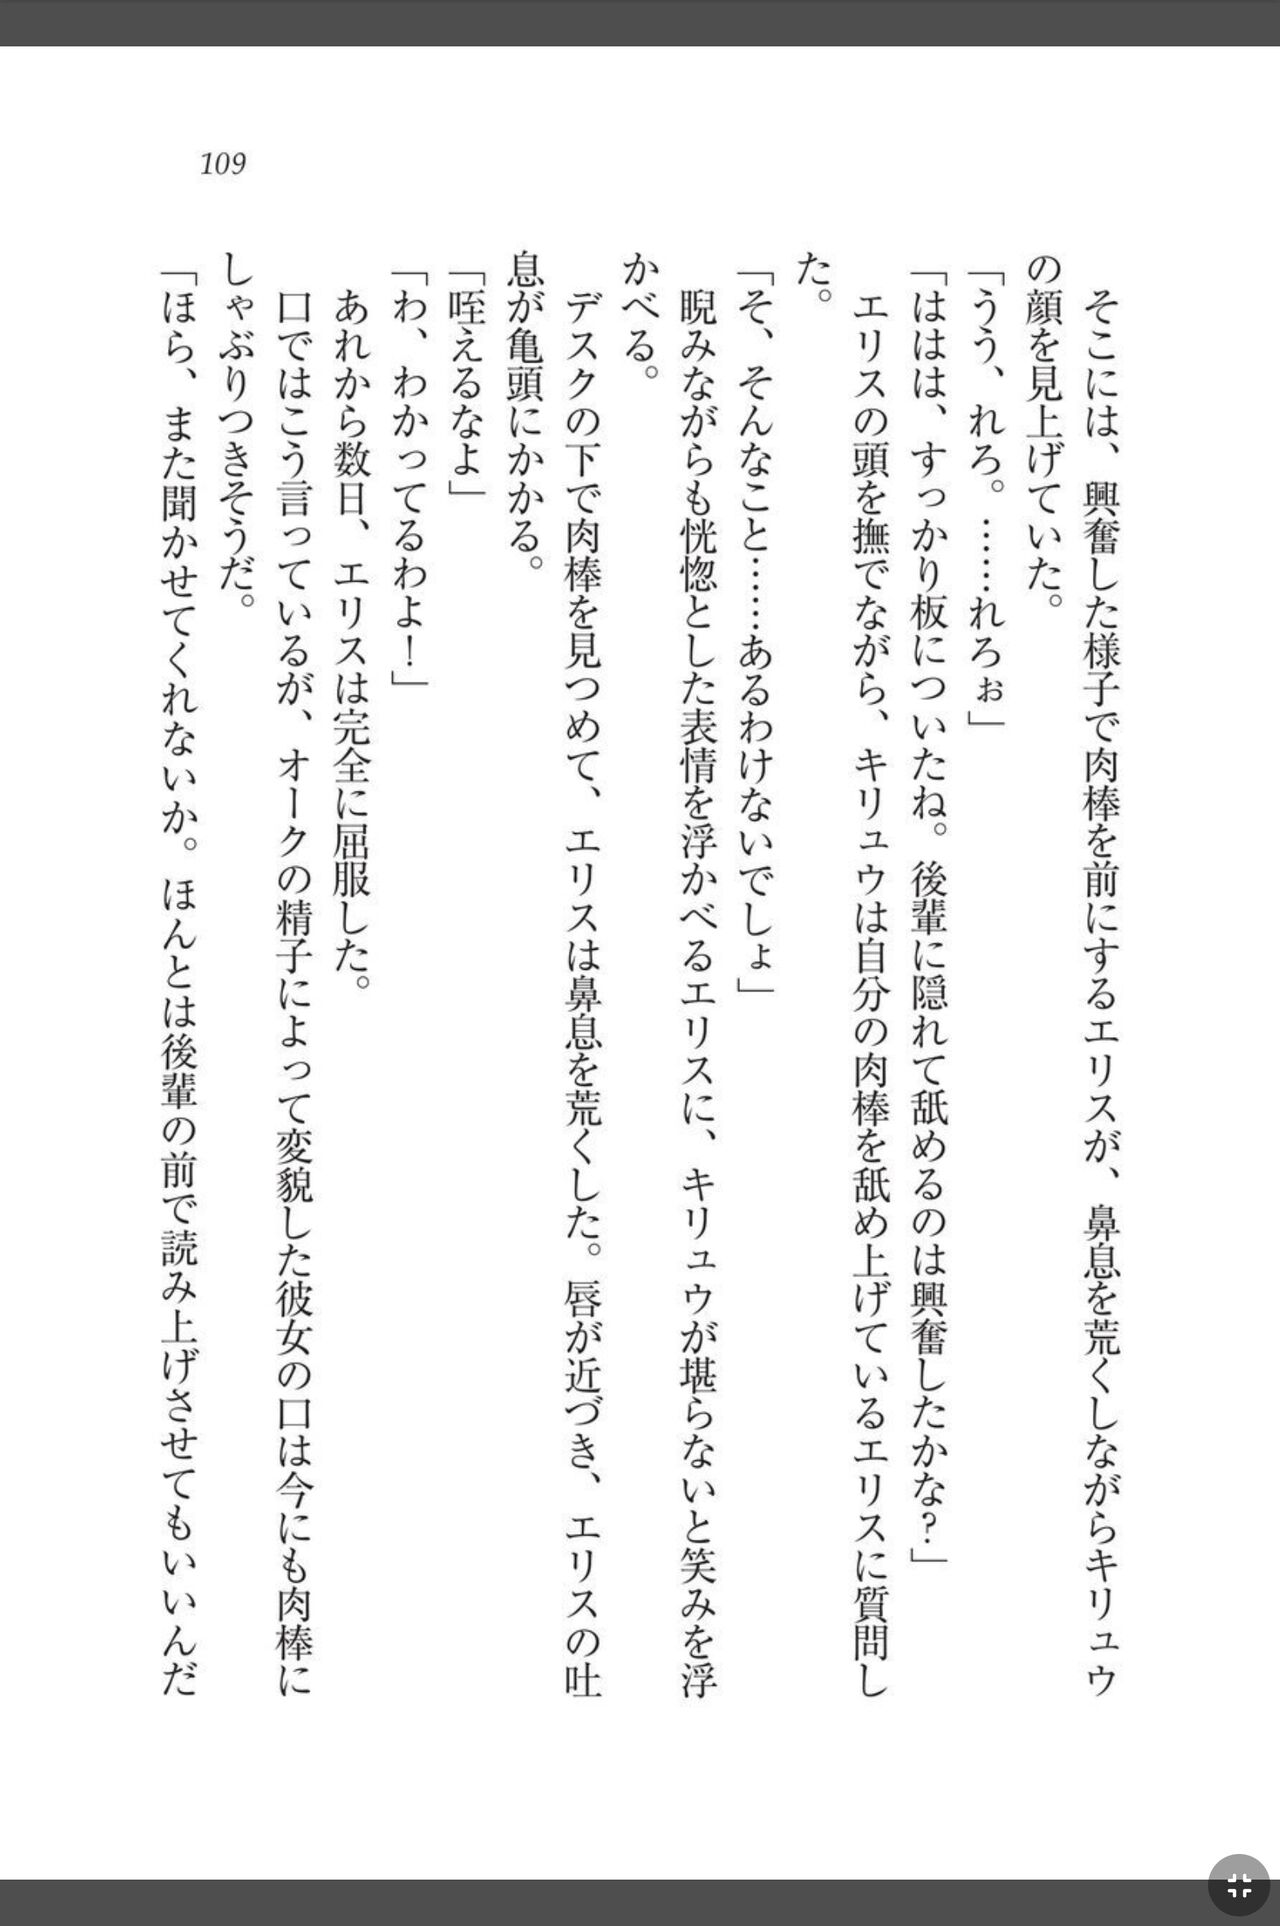 109
そこには、興奮した様子で肉棒を前にするエリスが、鼻息を荒くしながらキリュウ
の顔を見上げていた。
「うう、れろ。……れろぉ」
「ははは、すっかり板についたね。後輩に隠れて舐めるのは興奮したかな？」
エリスの頭を撫でながら、キリュウは自分の肉棒を舐め上げているエリスに質問し
た。
「そ、そんなこと……あるわけないでしょ」
睨みながらも恍惚とした表情を浮かべるエリスに、キリュウが堪らないと笑みを浮
かべる。
デスクの下で肉棒を見つめて、エリスは鼻息を荒くした。唇が近づき、エリスの吐
息が亀頭にかかる。
「咥えるなよ」
「わ、わかってるわよ！」
あれから数日、エリスは完全に屈服した。
口ではこう言っているが、オークの精子によって変貌した彼女の口は今にも肉棒に
しゃぶりつきそうだ。
「ほら、また聞かせてくれないか。ほんとは後輩の前で読み上げさせてもいいんだ